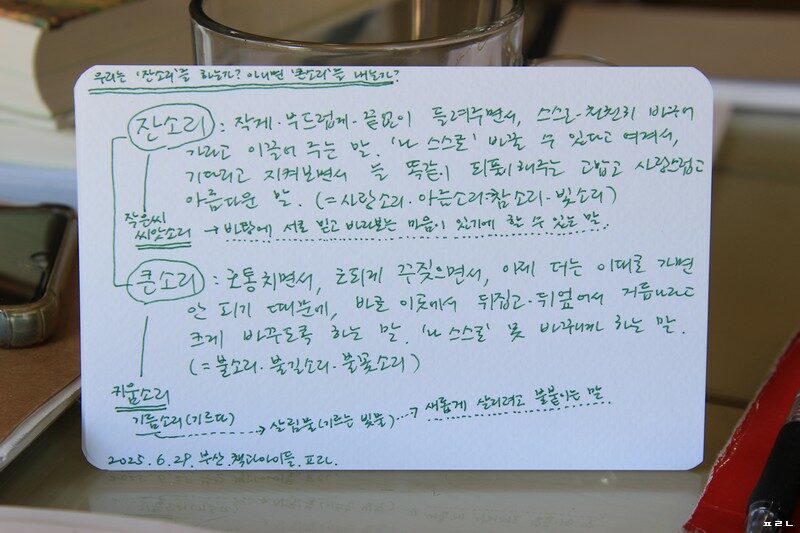 우리는 '잔소리'를 하는가? 아니면 '큰소리'를 내는가?
잔소리 : 작게·부드럽게·끝없이 들려주면서, 스스로·천천히 바꾸어
가라고 이끌어 주는 말. '나 스스로' 바꿀 수 있다고 여겨서,
기다리고 지켜보면서 늘 똑같이 되풀이해주는 고맙고 사랑스럽고
아름다운 말. (=사랑소리·아른소리·참소리·빛소리)
작은씨
씨앗소리
→ 바탕에 서로 믿고 바라보는 마음이 있기에 할 수 있는 말.
큰소리 : 호통치면서, 호되게 꾸짖으면서, 이제 더는 이대로 가면
안 되기 때문에, 바로 이곳에서 뒤집고·뒤엎어서 거듭나라고
크게 바꾸도록 하는 말. '나 스스로' 못 바꾸니까 하는 말.
(=불소리·불길소리·불꽃소리)
키움소리
기름소리(기르다) → 살림불(기르는 빛불) → 새롭게 살리려고 불붙이는 말.
2025.6.29. 부산.책과아이들. ㅍㄹㄴ.
ㅍㄹㄴ